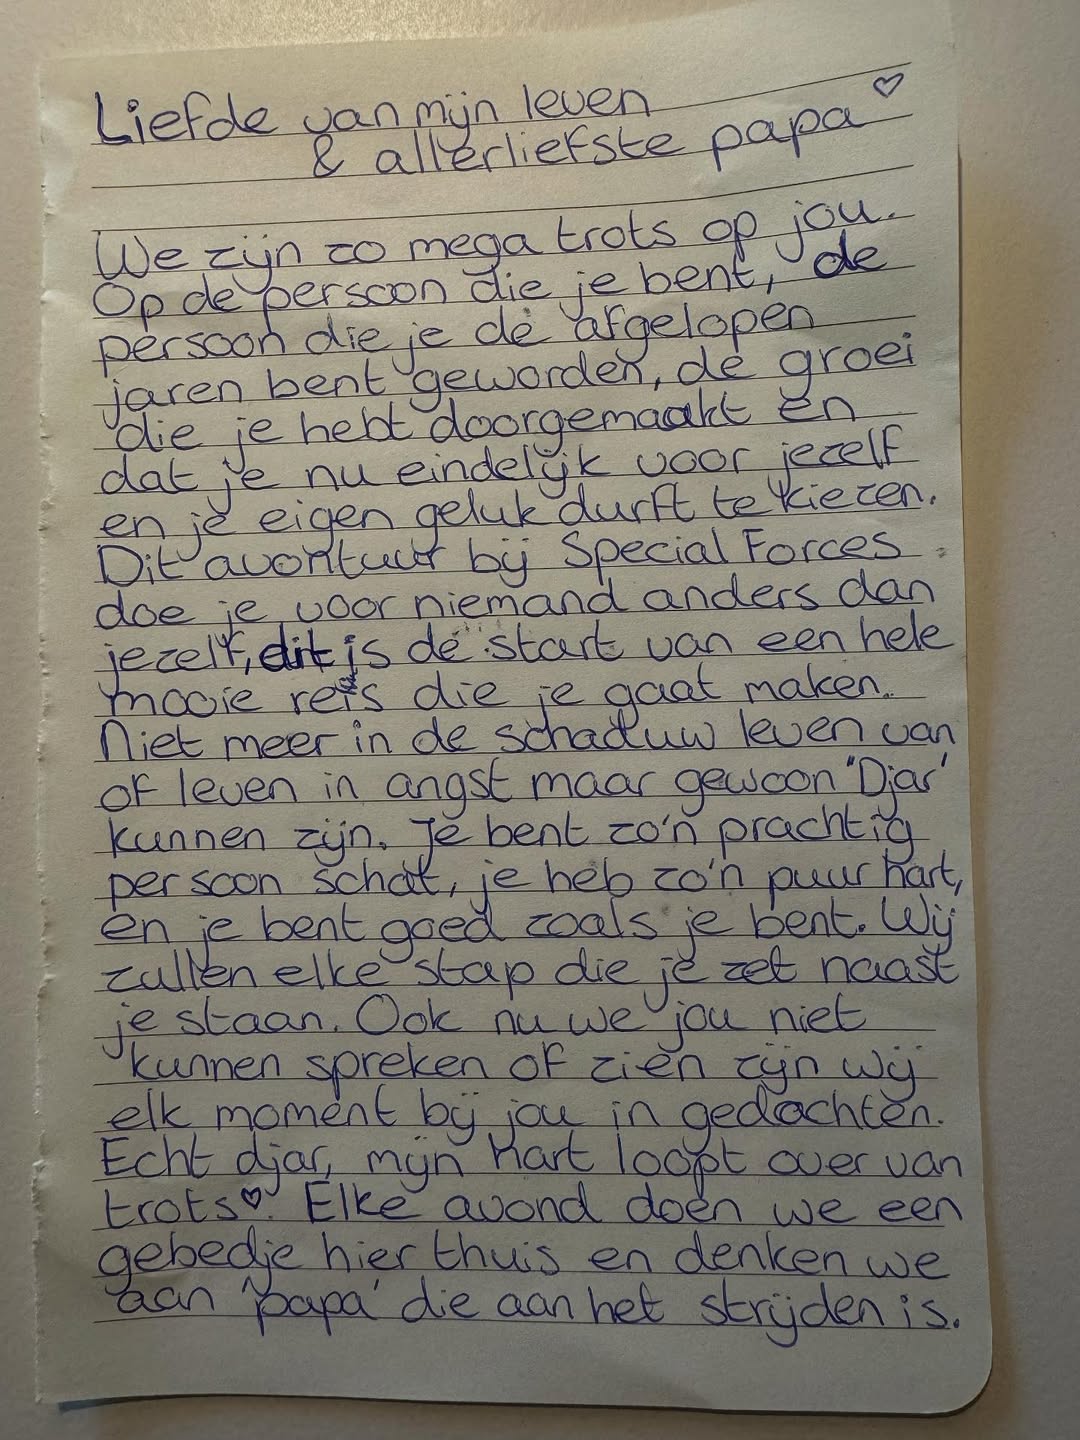 Liefde van mijn leven
& allerliefste papa ♡
We zijn zo mega trots op jou.
Op de persoon die je bent, de
persoon die je de afgelopen
jaren bent geworden, de groei
die je hebt doorgemaakt en
dat je nu eindelijk voor jezelf
en je eigen geluk durft te kiezen.
Dit avontuur bij Special Forces
doe je voor niemand anders dan
jezelf, dit is de start van een hele
mooie reis die je gaat maken.
Niet meer in de schaduw leven van
of leven in angst maar gewoon "Djar"
kunnen zijn. Je bent zo'n prachtig
persoon schat, je heb zo'n puur hart,
en je bent goed zoals je bent. Wij
zullen elke stap die je zet naast
je staan. Ook nu we jou niet
kunnen spreken of zien zijn wij
elk moment bij jou in gedachten.
Echt djar, mijn hart loopt over van
trots♡. Elke avond doen we een
gebedje hier thuis en denken we
aan 'papa' die aan het strijden is.